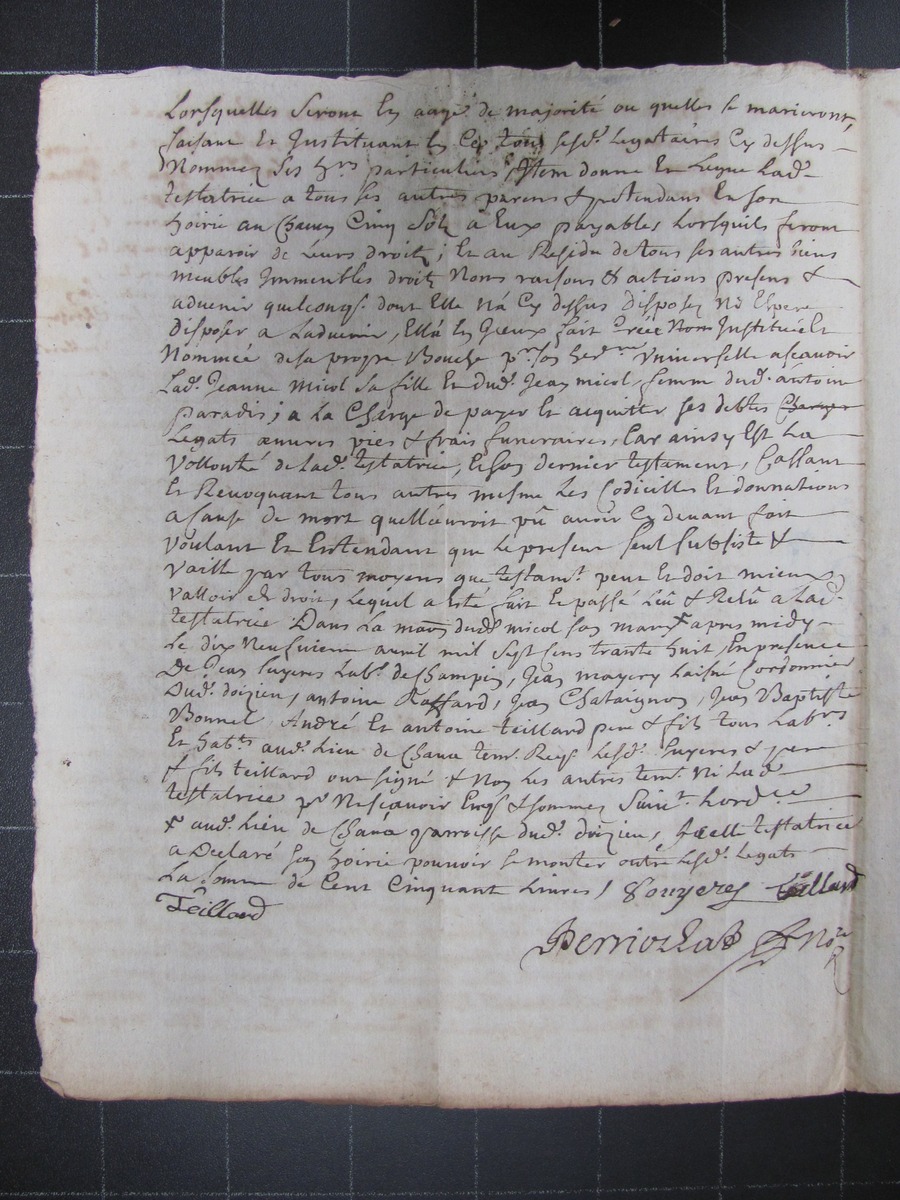 Lorsquelles seront En aagé de majorité ou quelles se marieront,
faisant Et Instituant En Ce tous sesd. Legataires Cy dessus
Nommez ses hrs particuliers Item donne Et Legue Lad.
testatrice a tous ses autres parens & pretendans En son
hoirie au Chacun Cinq Solz a Eux payables Lorsquils feront
apparoir de Leurs droitz ; Et au Residu de tous ses autres biens
meubles Immeubles droitz Noms raisons & actions presens &
advenir quelconqs. dont Elle N'a Cy dessus disposez Ni Espere
disposer a Ladvenir, Ella En Iceux fait Creée Nom Instituée Et
Nommée de sa propre Bouche pr. son herre. Vniverselle ascavoir
Lad. Jeanne micol sa fille Et dud. Jean micol, femme dud. antoine
paradis ; a La Charge de payer Et acquitter ses debtes Charges
Legats œuvres pies & frais funeraires, Car ainsy Est La
Vollonté de Lad. testatrice, Et son dernier testament, Cassant
Et Revoquant tous autres mesme Les Codicilles Et donnations
a Cause de mort quelle auroit pû avoir Cy devant fait
Voulant Et Entendant que Le present seul subsiste &
Vaille par tous moyens que testamt. peut Et doit mieux
Valloir de droit, Lequel a Esté fait Et passé Leû & Relû a Lad.
testatrice Dans La maon dud. micol son mary + apres midy
Le dix Neufvieme avril mil sept cens trante huit, En presence
De Jean fuyeres Labr. de Champin, Jean mayery Laisné Cordonnier
Dud. doizieu, antoine Raffard, Jean Chataignon, Jean Baptiste
Bonnel, André Et antoine teillard pere & fils tous Labrs
Et habts. aud. Lieu de Chana tem. Reqs. Lesd. fuyeres & pere
& fils teillard ont signé & Non Les autres tem. Ni Lad.
testatrice pr. Ne scavoir Enqs. & sommes Suivt. Lordce
+ aud. Lieu de Chana parroisse dud. doizieu, Icelle testatrice
a Declaré son hoirie pouvoir se monter outre Lesd. Legats
La somme de Cent Cinquant Livres / fouyeres teillard
Teillard
Perriozlat Nore R